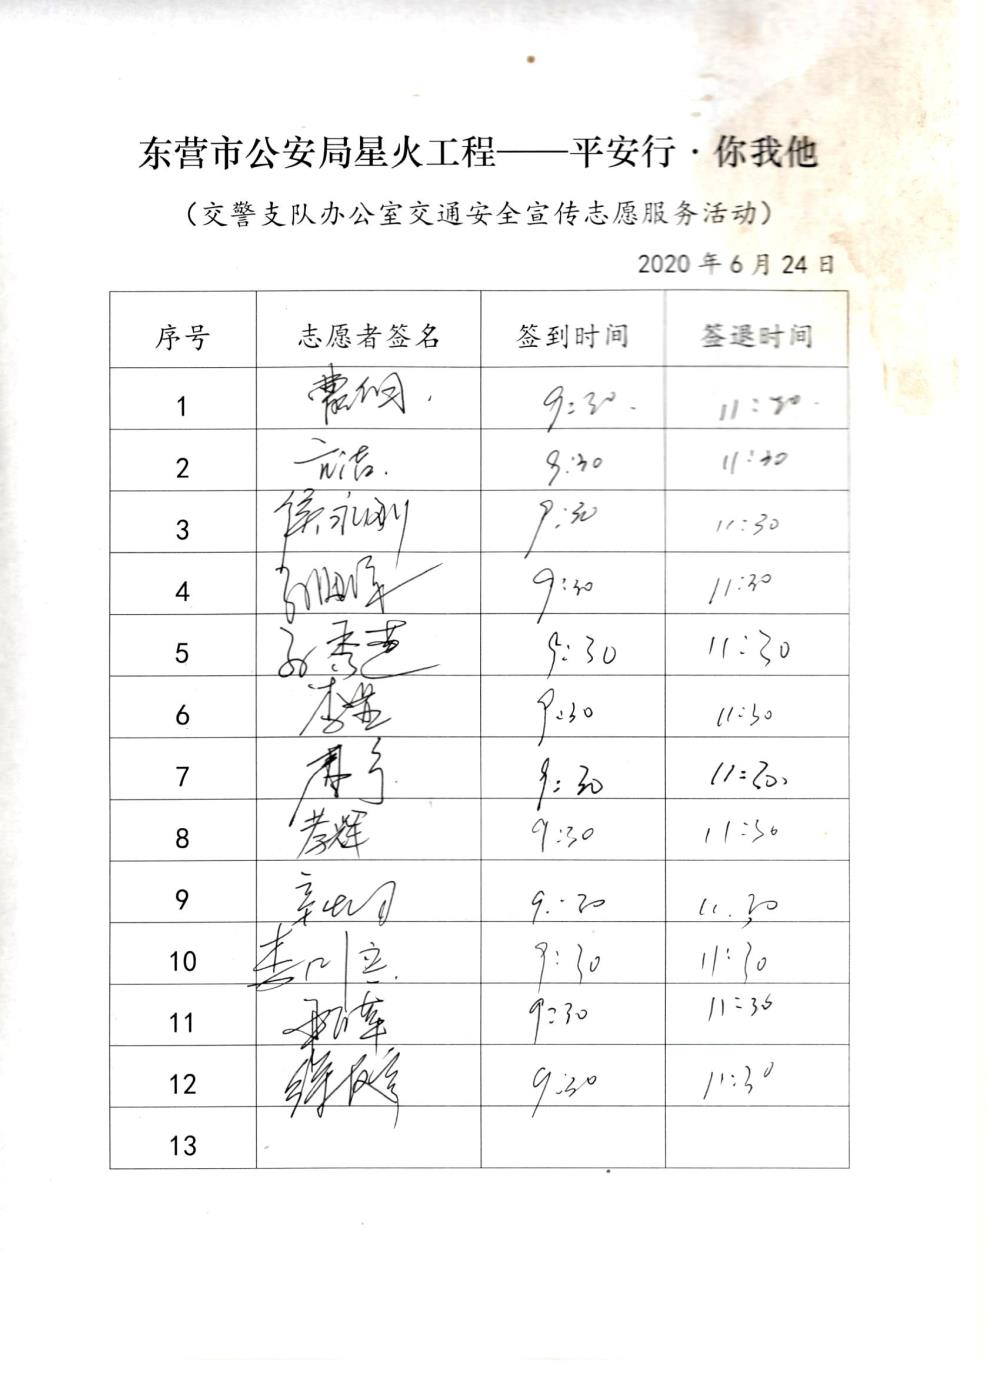 东营市公安局星火工程——平安行·你我他
（交警支队办公室交通安全宣传志愿服务活动）
2020年6月24日
序号 志愿者签名 签到时间 签退时间
1 9:30. 11:30.
2 9:30 11:30
3 侯永刚 9:30 11:30
4 9:30 11:30
5 孙秀芝 9:30 11:30
6 9:30 11:30
7 9:30 11:30.
8 9:30 11:30
9 9:30 11:30
10 9:30 11:30
11 9:30 11:30
12 9:30 11:30
13